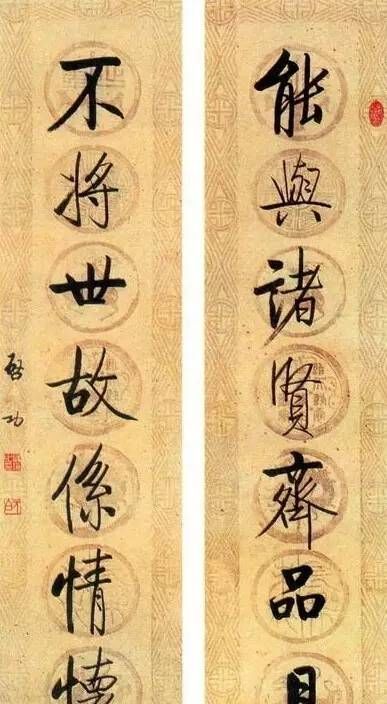 能與諸賢齊品目
不將世故係情懷
啓功